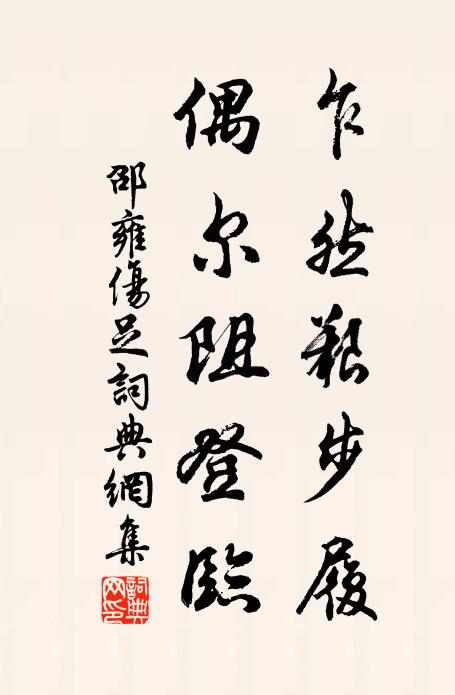 乍然艱步履
偶尔阻登臨
邵雍傷足詞典網集
詞典網印